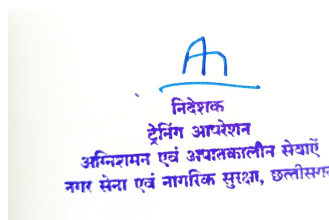 निदेशक
ट्रेनिंग आपरेशन
अग्निशमन एवं अपातकालीन सेवाऐं
नगर सेना एवं नागरिक सुरक्षा, छत्तीसगढ